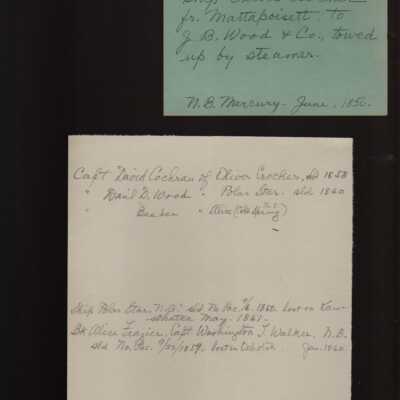 fr. Mattapoisett. to
J. B. Wood & Co., towed
up by steamer.
N. B. Mercury. June, 1850.
Capt David Cochran of Oliver Crocker, sld 1858
" Dan'l D. Wood " Polar Star. sld 1860
" Barber " Alice (Cold Spring)
Ship Polar Star, N.B. sld No. Pac. 1860. lost on Kam-
schatka May. 1861.
Bk Alice Frazier, Capt. Washington T. Walker, N.B.
sld. No. Pac. 1859. lost in Okhotsk Jan. 1860